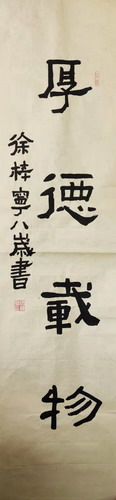 厚德載物
徐梓寧八歲書